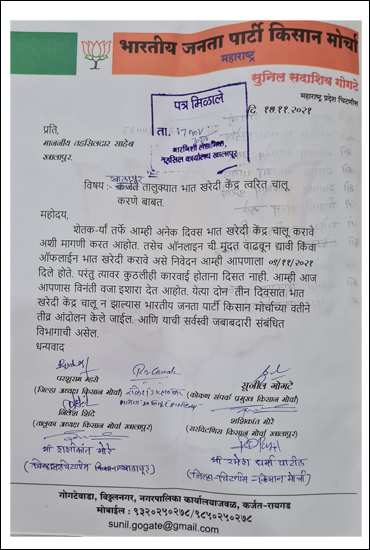 भारतीय जनता पार्टी किसान मोर्चा
महाराष्ट्र
सुनिल सदाशिव गोगटे
महाराष्ट्र प्रदेश चिटणीस
पत्र मिळाले
दि. १७.११.२०२१
ता. 17 NOV
तहसिल कार्यालय खालापूर
प्रति,
माननीय तहसिलदार साहेब
खालापूर.
खालापूर
विषय:- कर्जत तालुक्यात भात खरेदी केंद्र त्वरित चालू
करणे बाबत.
महोदय,
शेतक-याँ तर्फे आम्ही अनेक दिवस भात खरेदी केंद्र चालू करावे
अशी मागणी करत आहोत. तसेच ऑनलाइन ची मुदत वाढवून द्यावी किंवा
ऑफलाईन भात खरेदी करावे असे निवेदन आम्ही आपणाला ०९/११/२०२१
दिले होते. परंतु त्यावर कुठलीही कारवाई होताना दिसत नाही. आम्ही आज
आपणास विनंती वजा इशारा देत आहोत. येत्या दोन तीन दिवसात भात
खरेदी केंद्र चालू न झाल्यास भारतीय जनता पार्टी किसान मोर्चाच्या वतीने
तीव्र आंदोलन केले जाईल. आणि याची सर्वस्वी जबाबदारी संबंधित
विभागाची असेल.
धन्यवाद
परशुराम म्हसे
सुनील गोगटे
(जिल्हा अध्यक्ष किसान मोर्चा)
(कोकण संपर्क प्रमुख किसान मोर्चा)
निलेश शिंदे
शशिकांत मोरे
(तालुका अध्यक्ष किसान मोर्चा खालापूर)
(सरचिटणिस किसान मोर्चा खालापूर)
श्री शशीकांत मोरे
श्री रमेश धर्मा पाटील
(जिल्हा-चिटणीस-किसान मोर्चा)
गोगटेवाडा, विठ्ठलनगर, नगरपालिका कार्यालयाजवळ, कर्जत-रायगड
मोबाईल : ९३२०२५०२७८/९८५०२५०२७८
sunil.gogate@gmail.com